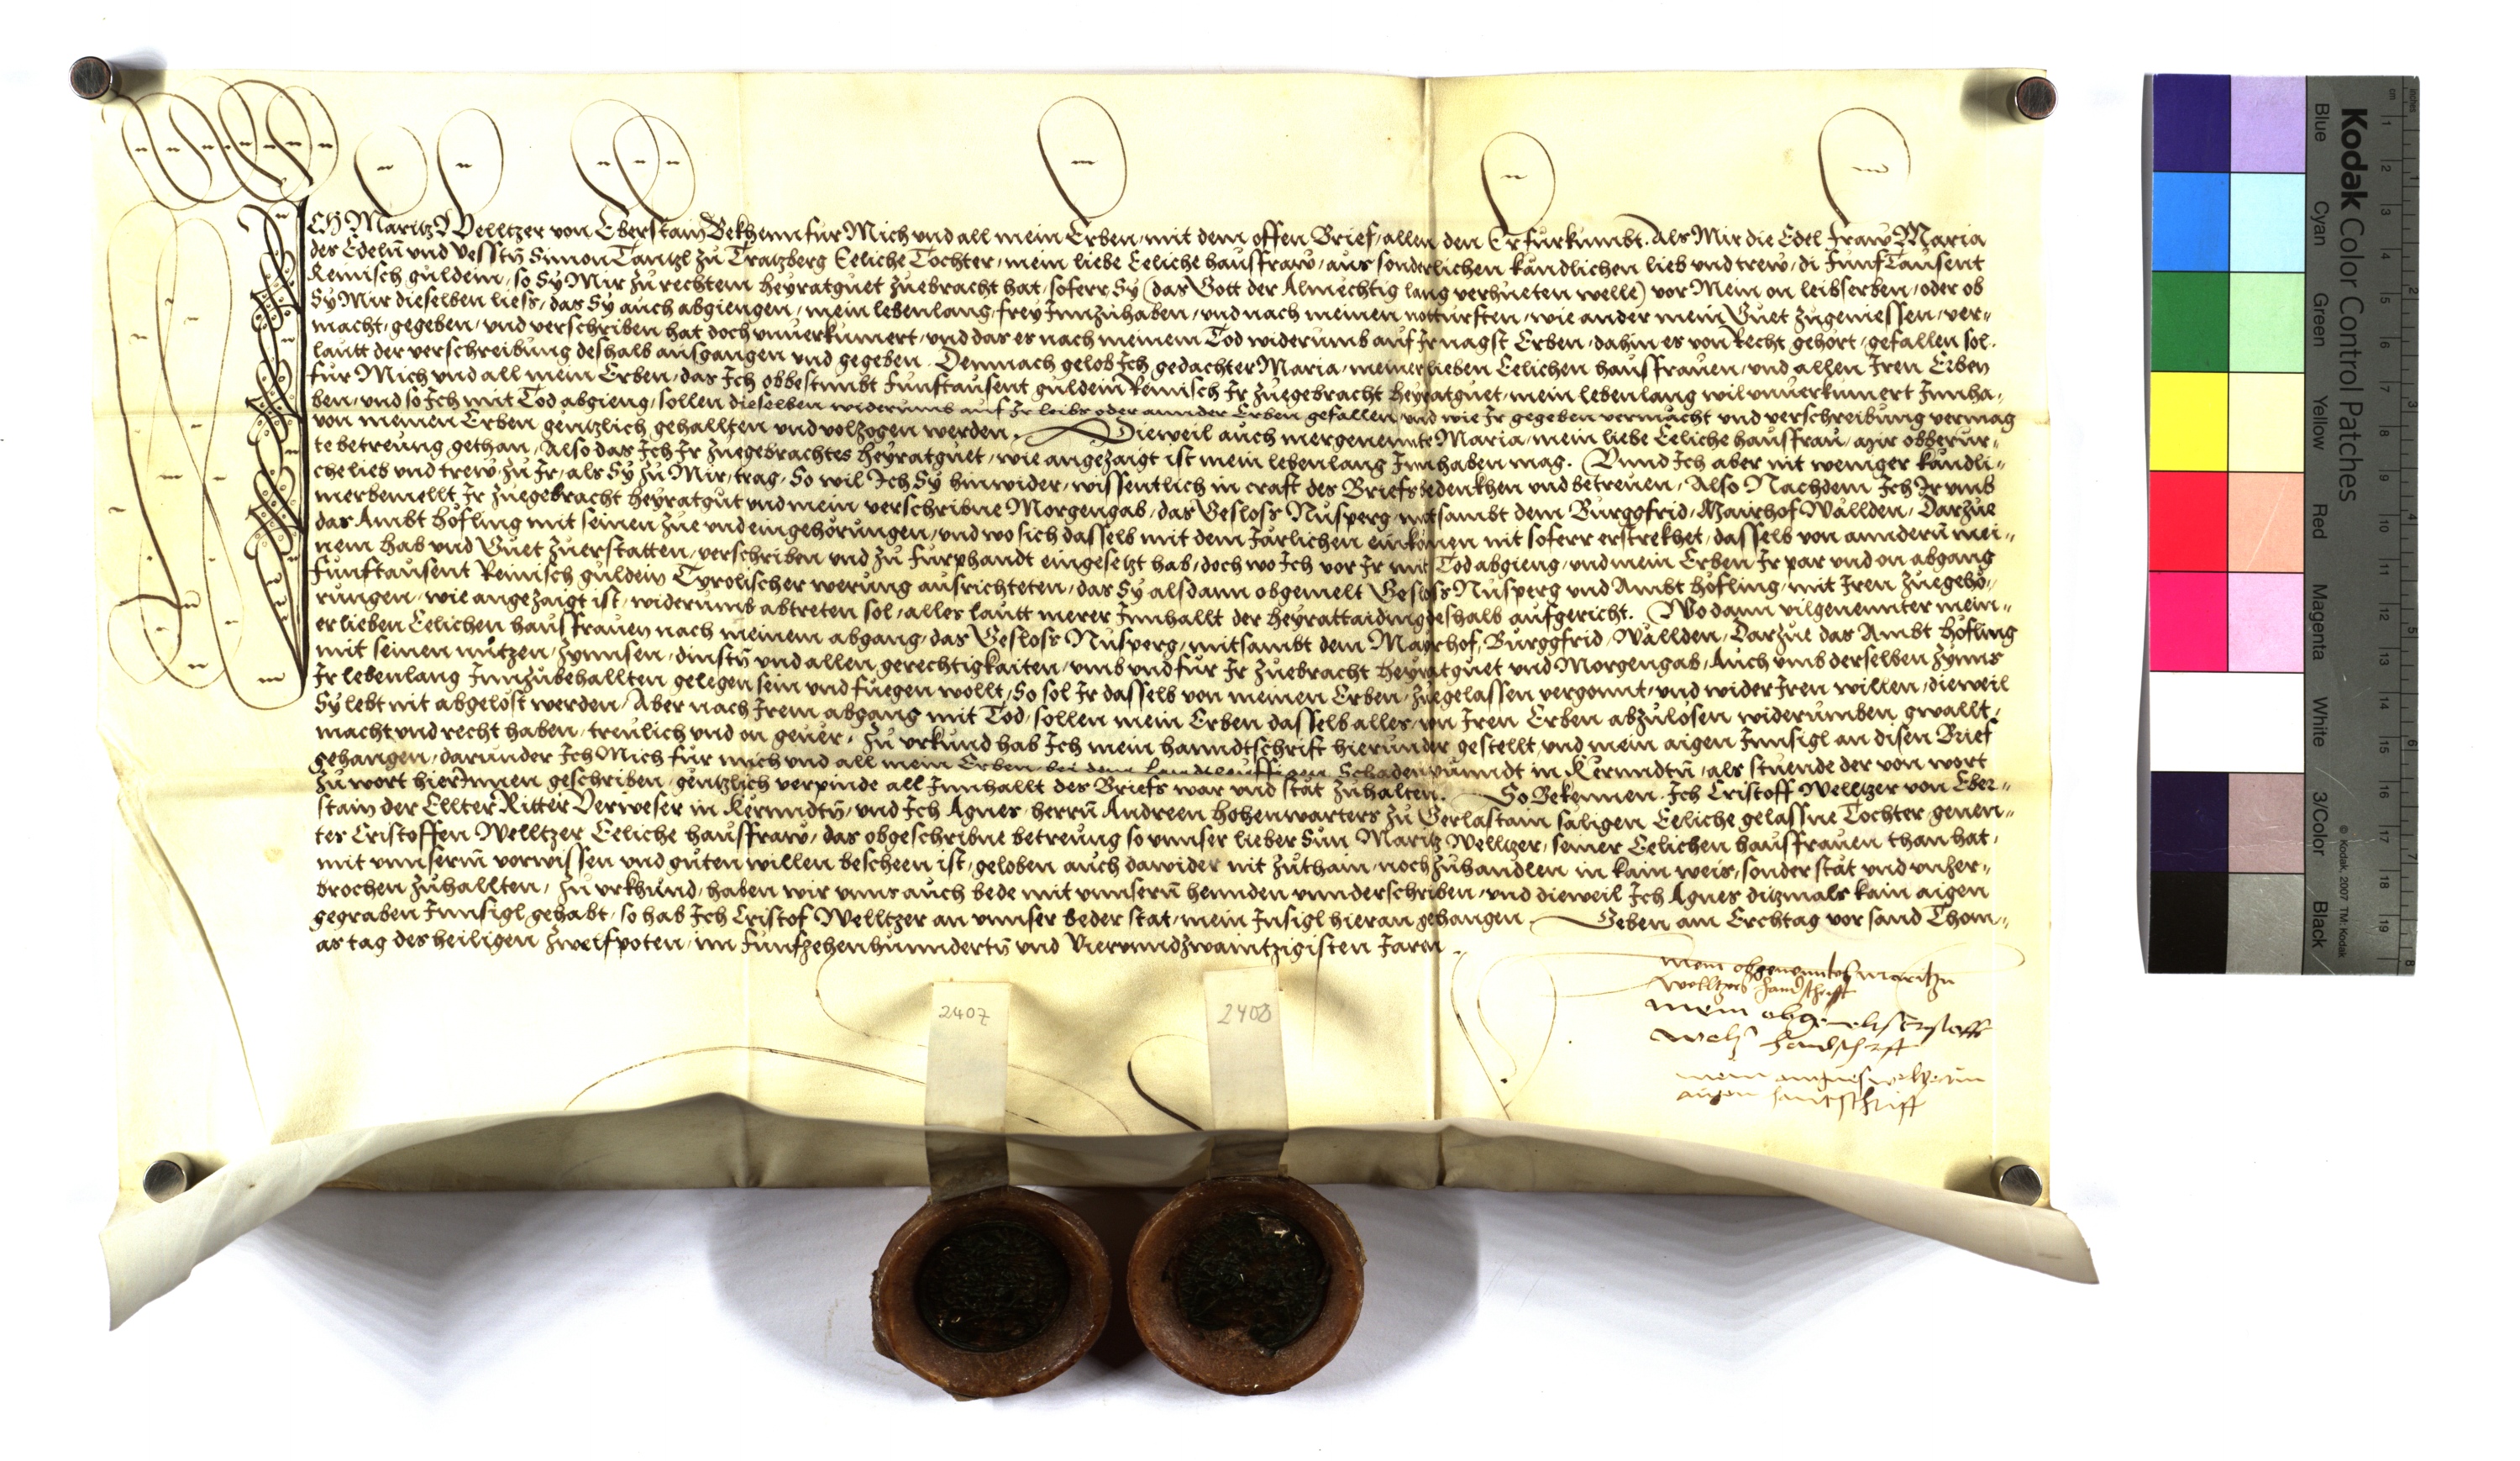 ICH Maritz Welltzer von Eberstain Bekhenn für Mich und all mein Erben, mit dem offen Brief, allen den Er fürkumbt. Als Mir die Edel Fraw Maria
des Edeln und Vesstn Simon Täntzl zu Tratzberg Eeliche Tochter, mein liebe Eeliche hausfraw, aus sonderlichen kändlichen lieb und trew, di Funf Tausent
Reinisch guldein, so Sy Mir zu rechtem Heyratguet zuebracht hat, soferr Sy (das Gott der Almechtig lang verhueten welle) vor Mein on leibserben, oder ob
Sy Mir dieselben liess, das Sy auch abgiengen, mein lebenlang, frey Innzuhaben, und nach meinen notturften, wie ander mein Guet zugeniessen, ver-
macht, gegeben, und verschriben hat doch unuerkumert, und das es nach meinem Tod widerumb auf Ir nagst Erben, dahin es von Recht gehört, gefallen sol.
lautt der verschreibung deshalb ausgangen und gegeben. Demnach gelob Ich gedachter Maria, meiner lieben Eelichen hausfrauen, und allen Iren Erben
für Mich und all mein Erben, das Ich obbestimbt Funftausent guldein Reinisch Ir zuegebracht Heyratguet, mein lebenlang wil unuerkumert Innha-
ben, und so Ich mit Tod abgieng, sollen dieselben widerumb auf Ir leibs oder annder Erben gefallen, und wie Ir gegeben vermacht und verschreibung vermag
von meinen Erben gentzlich gehallten und volzogen werden. Dieweil auch mergenennte Maria, mein liebe Eeliche hausfrau, mir obberür-
te betreung gethan, Also das Ich Ir zuegebrachtes Heyratguet, wie angezaigt ist mein lebenlang Innhaben mag. Vnnd Ich aber nit weniger kändli-
che lieb und trew zu Ir, als Sy zu Mir, trag, So wil Ich Sy hinwider, wissentlich in craft des Briefs bedenkhen und betreuen, Also Nachdem Ich Ir umb
merbemellt Ir zuegebracht Heyratgut und mein verschribne Morgengab, das Gesloss Nusperg mitsambt dem Burggfrid, Mairhof Wällden, Darzue
das Ambt Höfling mit seinen zue und eingehörungen, und wo sich dasselb mit dem Järlichen einkomen nit soferr erstrekhet, dasselb von anndern mei-
nem Hab und Guet zuerstatten, verschriben und zu Fürphandt eingesetzt hab, doch wo Ich vor Ir mit Tod abgieng, und mein Erben Ir par und on abgang
Funftausent Reinisch guldein Tyrolischer werung ausrichteten, das Sy alsdann obgemelt Gesloss Nusperg und Ambt Höfling, mit Iren zuegehö-
rungen, wie angezaigt ist, widerumb abtreten sol, alles lautt merer Innhallt der Heyrattaiding deshalb aufgericht. Wo dann vilgenennter mein-
er lieben Eelichen hausfrauen nach meinem abgang, das Gesloss Nusperg, mitsambt dem Mayrhof, Burggfrid, Wällden, Darzue das Ambt Höfling
mit seinen nutzen, zynnsen, dinstn und allen gerechtigkaiten, umb und für Ir zuebracht Heyratguet und Morgengab, Auch umb derselben zynns
Ir lebenlang Innzubehallten gelegen sein und fuegen wollt, So sol Ir dasselb von meinen Erben, zuegelassen vergonnt, und wider Iren willen, dieweil
Sy lebt nit abgelöst werden, Aber nach Irem abgang mit Tod, sollen mein Erben dasselb alles, von Iren Erben abzulösen widerumben gwallt,
macht und recht haben, treulich und on geuer. Zu urkund hab Ich mein hanndtschrift hierunder gestellt, und mein aigen Innsigl an disen Brief
gehangen, darunder Ich Mich für mich und all mein Erben bei dem Landtleuffigen Schadenpunndt in Kernndtn, als stuende der von wort
zu wort hierInnen geschriben, gentzlich verpinde all Innhallt des Briefs war und stät zuhalten. So Bekennen Ich Cristoff Welltzer von Eber-
stain der Ellter Ritter Verweser in Kernndtn, und Ich Agnes, herrn Andreen Hohenwarters zu Gerlastain säligen Eeliche gelassne Tochter genen-
tes Cristoffen Welltzer Eeliche hausfraw, das obgeschribne betreung so unnser lieber Sun Maritz Welltzer, seiner Eelichen hausfrauen than hat,
mit unnserm vorwissen und guten willen bescheen ist, geloben auch dawider nit zuthain, noch zuhandlen in kain weis, sonder stät und unzer-
brochen zuhallten, zu urkhund, haben wir unns auch bede mit unnsern hennden unnderschriben, und dieweil Ich Agnes ditzmals kain aigen
gegraben Innsigl gehabt, so hab Ich Cristof Welltzer an unnser beder stat, mein Insigl hieran gehangen. Geben am Erchtag vor sand Thom-
as tag des heiligen Zwelfpoten, im Funfzehenhunndertn und Vierundzwaintzigisten Jarn.
mein obgenannten Maritzn
Welltzers handschrifft
mein obgemelt Cristoff
Welz handschrifft
mein angnes welzerin
aigen hantschrifft
2407
2408
Kodak Color Control Patches
Blue Cyan Green Yellow Red Magenta White 3/Color Black
© Kodak, 2007 TM: Kodak
inches 1 2 3 4 5 6 7 8
cm 1 2 3 4 5 6 7 8 9 10 11 12 13 14 15 16 17 18 19